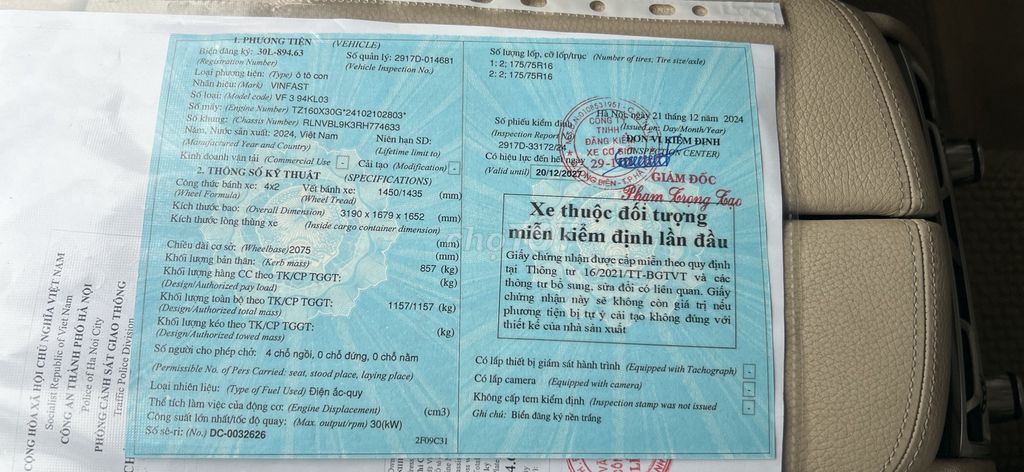 1. PHƯƠNG TIỆN (VEHICLE)
Biển đăng ký: 30L-894.63 Số quản lý: 2917D-014681
(Registration Number) (Vehicle Inspection No.)
Loại phương tiện: (Type) ô tô con
Nhãn hiệu: (Mark) VINFAST
Số loại: (Model code) VF 3 94KL03
Số máy: (Engine Number) TZ160X30G*24102102803*
Số khung: (Chassis Number) RLNVBL9K3RH774633
Năm, Nước sản xuất: 2024, Việt Nam Niên hạn SD:
(Manufactured Year and Country) (Lifetime limit to)
Kinh doanh vận tải (Commercial Use - Cải tạo (Modification) -
2. THÔNG SỐ KỸ THUẬT (SPECIFICATIONS)
Công thức bánh xe: 4x2 Vết bánh xe: 1450/1435 (mm)
(Wheel Formula) (Wheel Tread)
Kích thước bao: (Overall Dimension) 3190 x 1679 x 1652 (mm)
Kích thước lòng thùng xe (Inside cargo container dimension)
(mm)
Chiều dài cơ sở: (Wheelbase) 2075 (mm)
Khối lượng bản thân: (Kerb mass) 857 (kg)
Khối lượng hàng CC theo TK/CP TGGT: (kg)
(Design/Authorized pay load)
Khối lượng toàn bộ theo TK/CP TGGT: 1157/1157 (kg)
(Design/Authorized total mass)
Khối lượng kéo theo TK/CP TGGT: (kg)
(Design/Authorized towed mass)
Số người cho phép chở: 4 chỗ ngồi, 0 chỗ đứng, 0 chỗ nằm
(Permissible No. of Pers Carried: seat, stood place, laying place)
Loại nhiên liệu: (Type of Fuel Used) Điện ắc-quy
Thể tích làm việc của động cơ: (Engine Displacement) (cm3)
Công suất lớn nhất/tốc độ quay: (Max. output/rpm) 30(kW)
Số sê-ri: (No.) DC-0032626 2F09C31
Số lượng lốp, cỡ lốp/trục (Number of tires; Tire size/axle)
1: 2; 175/75R16
2: 2; 175/75R16
Hà Nội, ngày 21 tháng 12 năm 2024
(Issued on: Day/Month/Year)
Số phiếu kiểm định ĐƠN VỊ KIỂM ĐỊNH
(Inspection Report No) (INSPECTION CENTER)
2917D-33172/24
Có hiệu lực đến hết ngày
(Valid until) 20/12/2027
CÔNG TY
TNHH
ĐĂNG KIỂM
XE CƠ GIỚI
GIÁM ĐỐC
Phạm Trọng Tạo
Xe thuộc đối tượng
miễn kiểm định lần đầu
Giấy chứng nhận được cấp miễn theo quy định
tại Thông tư 16/2021/TT-BGTVT và các
thông tư bổ sung, sửa đổi có liên quan. Giấy
chứng nhận này sẽ không còn giá trị nếu
phương tiện bị tự ý cải tạo không đúng với
thiết kế của nhà sản xuất
Có lắp thiết bị giám sát hành trình (Equipped with Tachograph) -
Có lắp camera (Equipped with camera) -
Không cấp tem kiểm định (Inspection stamp was not issued -
Ghi chú: Biển đăng ký nền trắng
CỘNG HÒA XÃ HỘI CHỦ NGHĨA VIỆT NAM
Socialist Republic of Viet Nam
CÔNG AN THÀNH PHỐ HÀ NỘI
Police of Ha Noi City
PHÒNG CẢNH SÁT GIAO THÔNG
Traffic Police Division